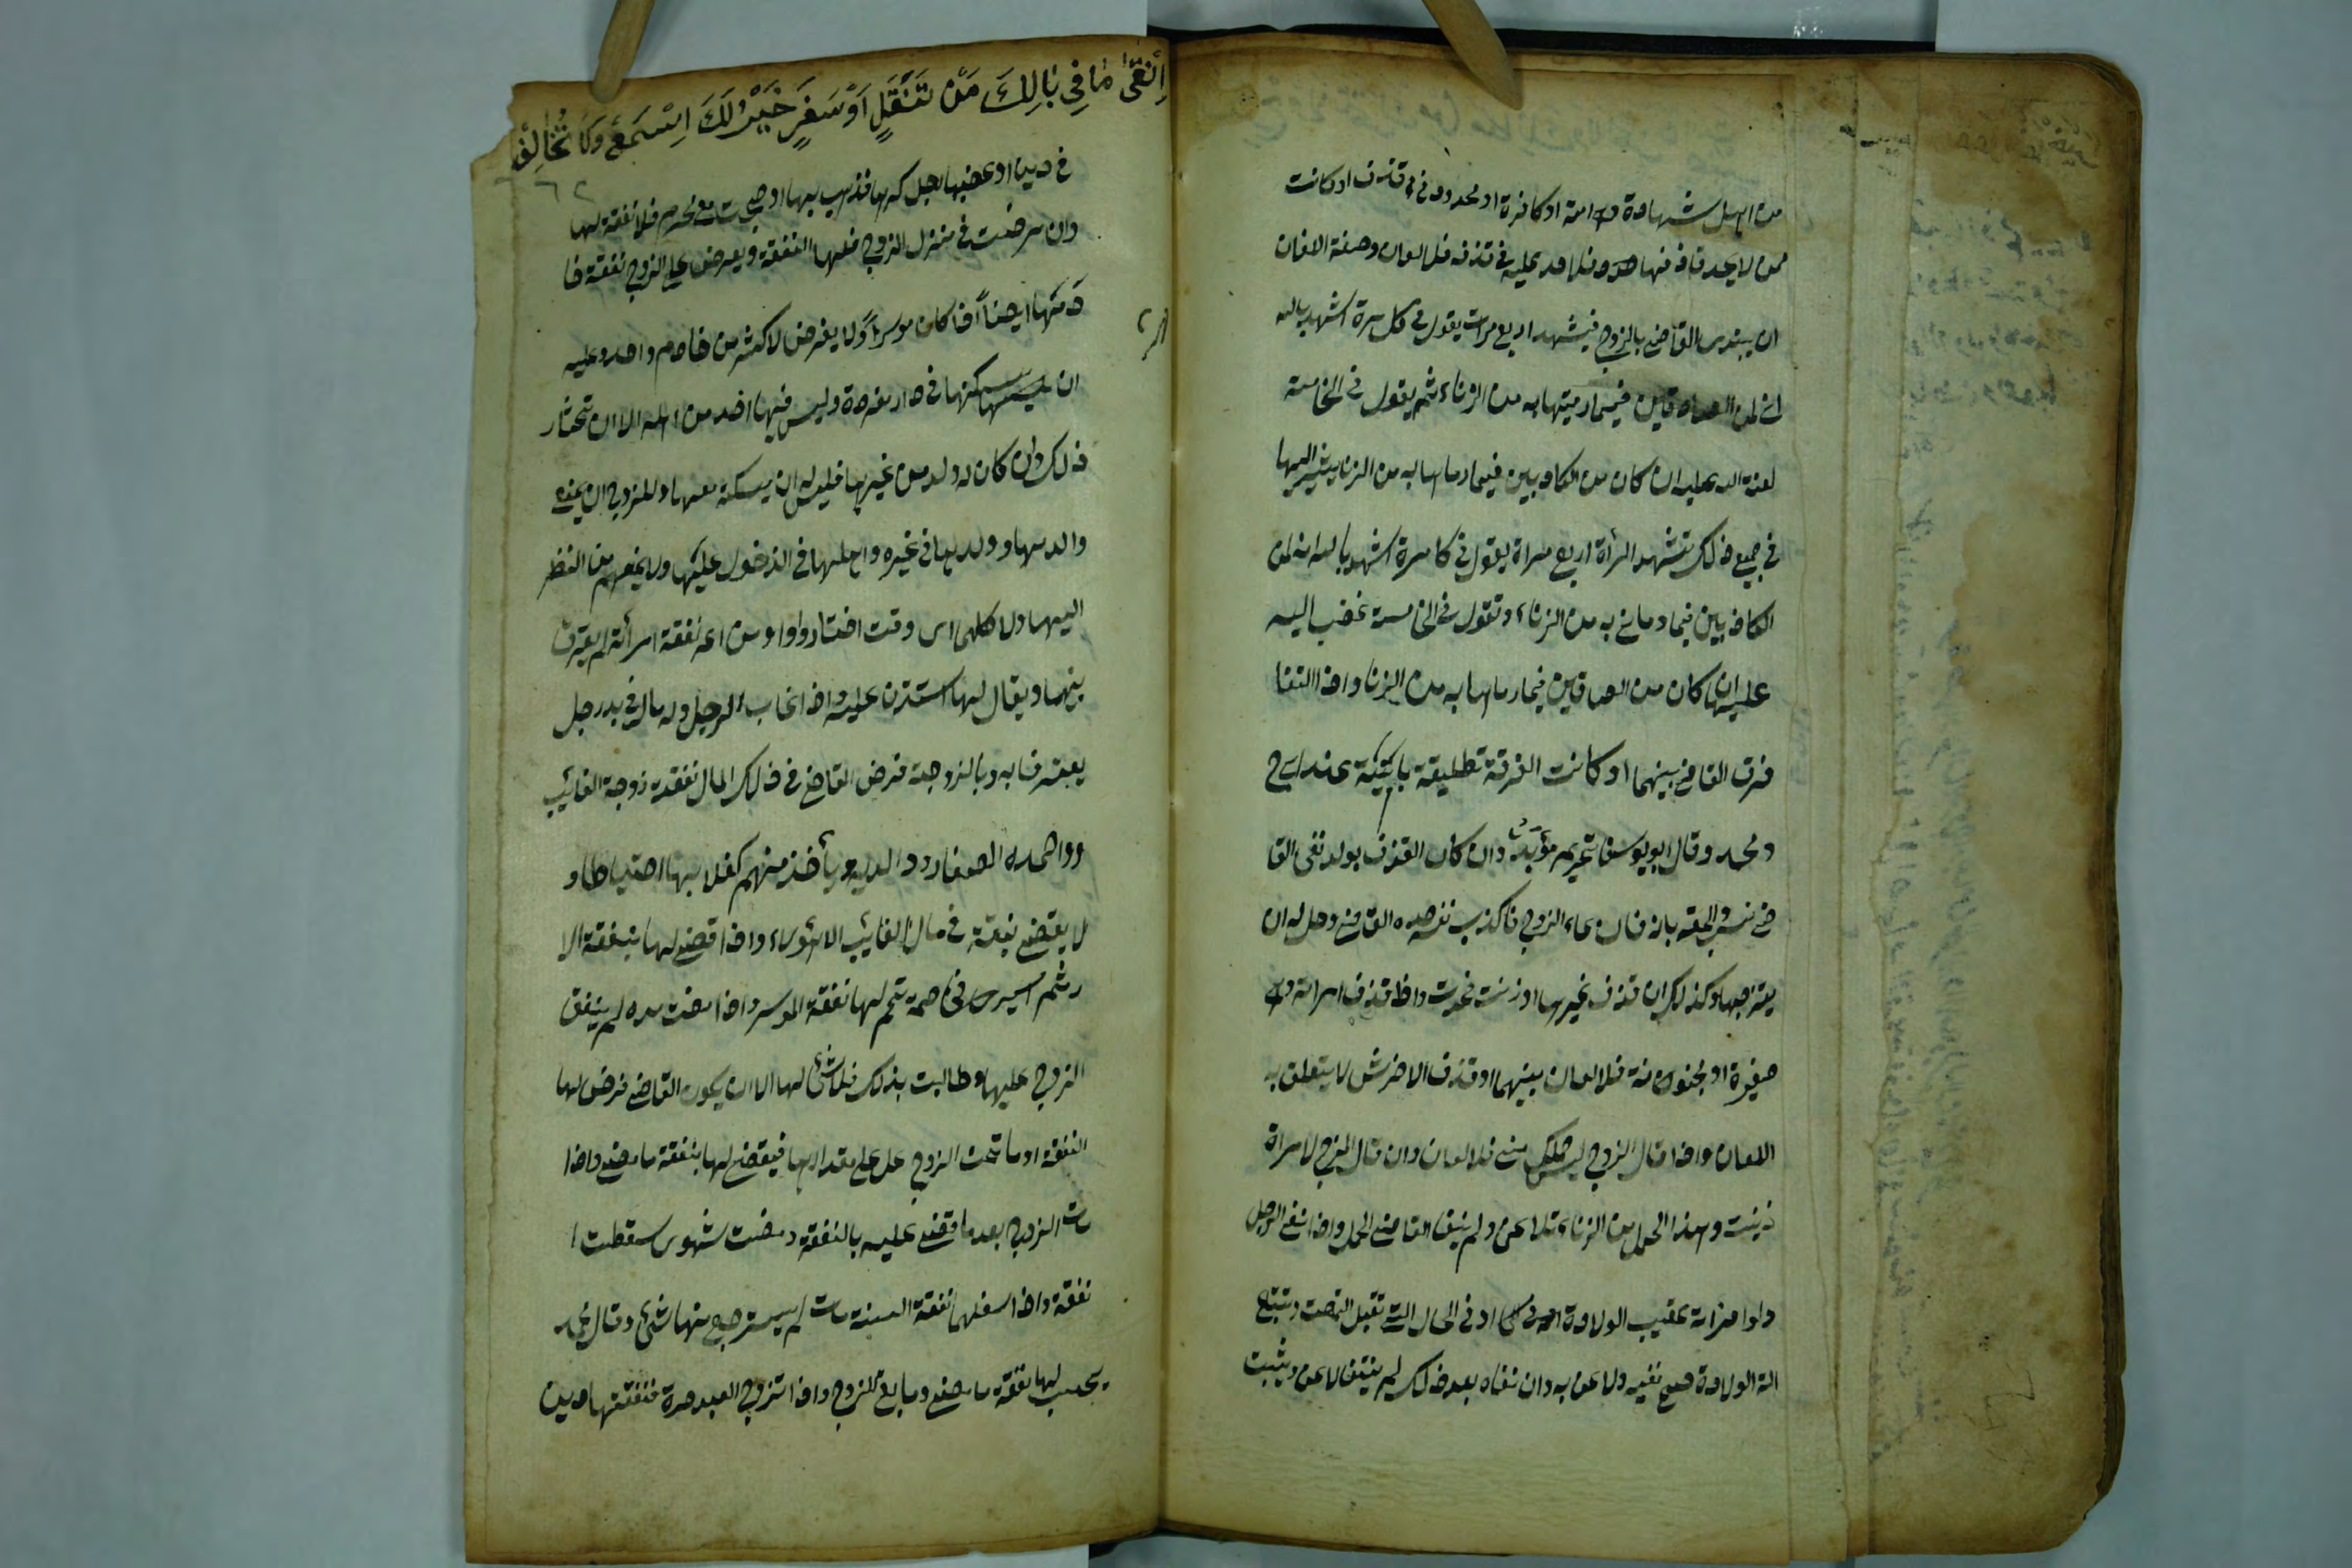 من اهل شهادة وهى امة او كافرة او محدودة فى قذف او كانت
ممن لا يحد قاذفها فلا حد عليه فى قذفه فلا لعان وصفة اللعان
ان يبتدى القاضى بالزوج فيشهد اربع مرات يقول فى كل مرة اشهد بالله
انى لمن الصادقين فيما رميتها به من الزناء ثم يقول فى الخامسة
لعنة الله عليه ان كان من الكاذبين فيما رماها به من الزنا يشير اليها
فى جميع ذلك تشهد المرأة اربع مراة يقول فى كل مرة اشهد بالله انه لمن
الكاذبين فيما رمانى به من الزناء وتقول فى الخامسة غضب الله
عليها ان كان من الصادقين فيما رماها به من الزنا واذا التعنا
فرق القاضى بينهما او كانت الفرقة تطليقة باينة عند ابى ح
ومحمد وقال ابو يوسف تحريم مؤبد وان كان القذف بولد نفى القا
ضى نسبه والحقه بامه فان عاد الزوج فاكذب نفسه حده القاضى وحل له ان
يتزوجها وكذلك ان قذف غيرها او زنت فحدت واذا قذف امراته وهى
صغيرة او مجنونة فلا لعان بينهما او قذف الاخرس لا يتعلق به
اللعان واذا قال الزوج ليس حملك منى فلا لعان وان قال الزوج لامراة
زنيت وهذا الحمل من الزناء تلاعن ولم ينف القاضى الحمل واذا نفى الرجل
ولد امراته عقيب الولادة او فى الحال التى تقبل التهنت وتبتع
الة الولادة صح نفيه ولاعن به وان نفاه بعد ذلك لم ينتف لاعن ويثبت
اِتَّقِىْ مَا فِىْ بَالِكَ مَنْ تَنَقَّلٍ اَوْ سَفَرٍ خَيْرٌ لَكَ اِسْمَعْ وَلَا تُخَالِفْ
فى دين او غصبها رجل كرها فذهب بها او حجت مع محرم فلا نفقة لها
وان مرضت فى منزل الزوج فلها النفقة ويفرض على الزوج نفقة خا
دمتها ايضاً اذا كان موسراً ولا يفرض لاكثر من خادم واحد وعليه
ان يسكنها فى دار مفردة وليس فيها احد من اهله الا ان تختار
ذلك وان كان له ولد من غيرها فليس له ان يسكنه معها وللزوج ان يمنع
والديها وولدها فى غيره واهلها فى الدخول عليها ولا يمنعهم من النظر
اليها ولا كلامها اى وقت اختاروا ومن اعسر نفقة امرأته لم يفرق
بينهما ويقال لها استدن عليه واذا غاب الرجل وله مال فى يد رجل
يعترف به وبالزوجة فرض القاضى فى ذلك المال نفقة زوجة الغائب
وولده الصغار ووالديه ويأخذ منهم كفلا بها احتياطا و
لا يقضى نفقة فى مال الغائب الا لهؤلاء واذا قضى لها بنفقة الا
ثم ايسر فخاصمة تمم لها نفقة الموسر واذا مضت مدة لم ينفق
الزوج عليها وطالبت بذلك فلا شئ لها الا ان يكون القاضى فرض لها
النفقة او صالحت الزوج على مقدارها فيقضى لها بنفقة ما مضى واذا
مات الزوج بعد ما قضى عليه بالنفقة ومضت شهور سقطت ا
نفقة واذا اسفلها نفقة السنة مات لم يسترجع منها شئ وقال محمد
يحسب لها نفقة ما مضى وما بقى للزوج واذا تزوج العبد حرة فنفقتها دين